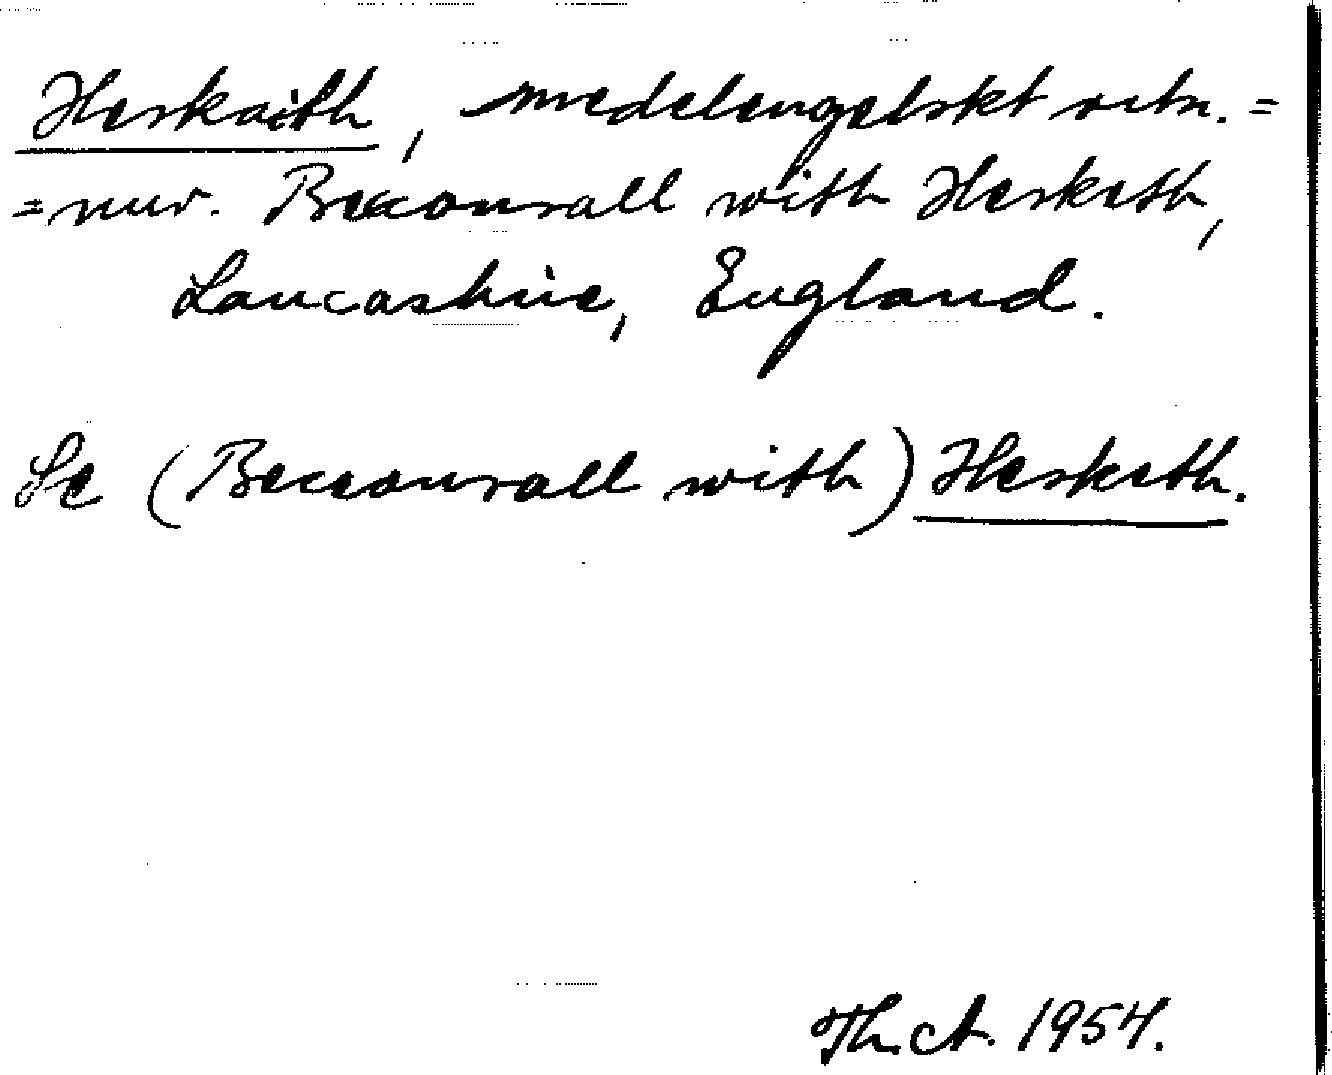 Heskaith, medelengelskt ortn. =
= nuv. Becconsall with Hesketh,
Lancashire, England.
Se (Becconsall with) Hesketh.
Th. A. 1954.